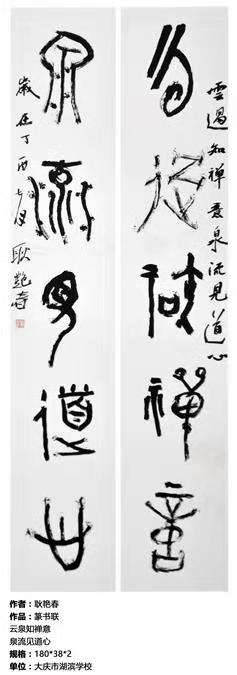 云過知禪意
雲過知禅意泉流見道心
泉流見道心
歲在丁酉
耿艷春
作者：耿艳春
作品：篆书联
云泉知禅意
泉流见道心
规格：180*38*2
单位：大庆市湖滨学校